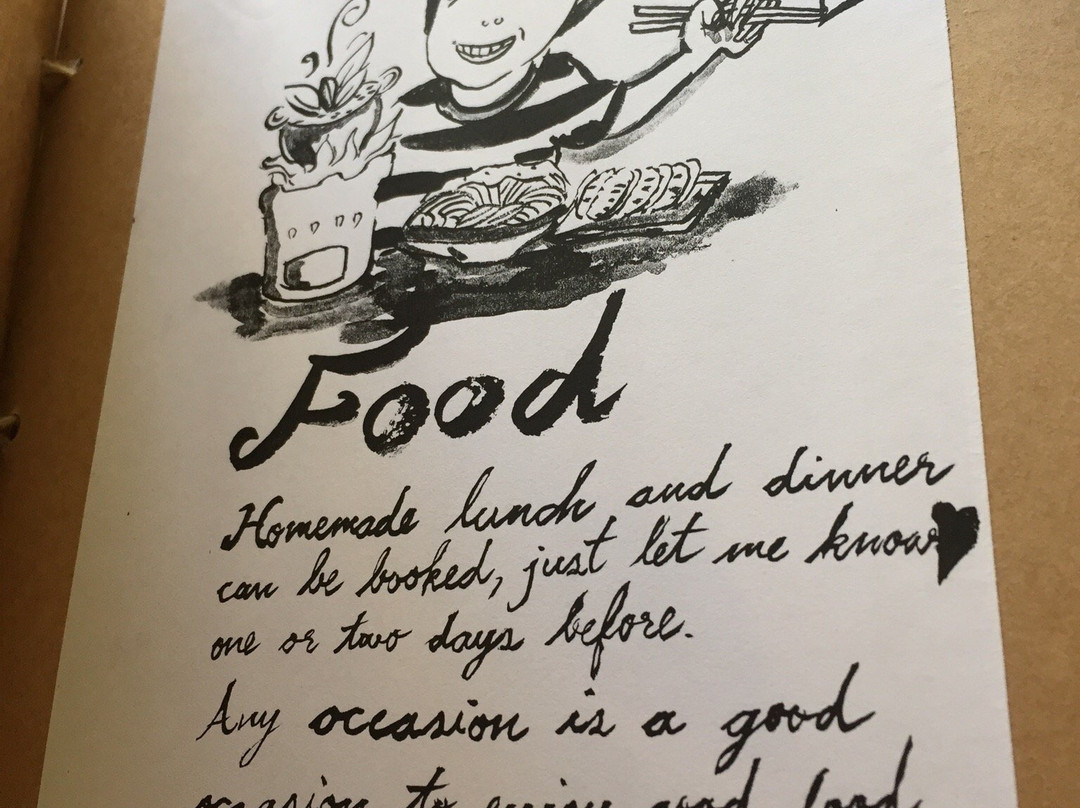 Food
Homemade lunch and dinner
can be booked, just let me know
one or two days before.
Any occasion is a good
occasion to enjoy good food